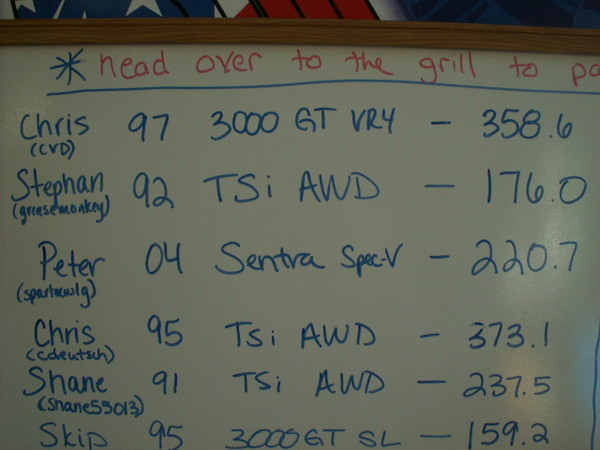 * head over to the grill to pa
Chris 97 3000 GT VR4 - 358.6
(CVD)
Stephan 92 TSi AWD - 176.0
(greasemonkey)
Peter 04 Sentra Spec-V - 220.7
Chris 95 TSi AWD - 373.1
(cdeutsch)
Shane 91 TSi AWD - 237.5
(Shane55013)
Skip 95 3000GT SL - 159.2